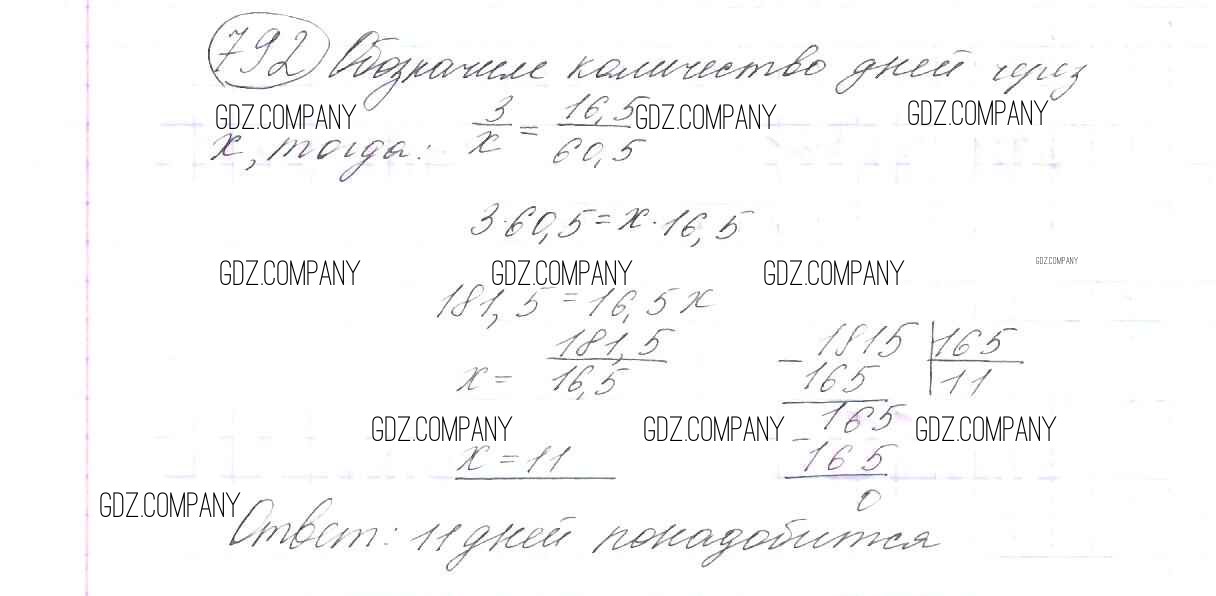 792 Обозначим количество дней через
GDZ.COMPANY GDZ.COMPANY GDZ.COMPANY
x, тогда: 3/x = 16,5/60,5
3·60,5=x·16,5
GDZ.COMPANY GDZ.COMPANY GDZ.COMPANY GDZ.COMPANY
181,5=16,5x
x= 181,5/16,5
1815 | 165
- 165 | 11
165
- 165
0
GDZ.COMPANY GDZ.COMPANY GDZ.COMPANY
x=11
GDZ.COMPANY
Ответ: 11 дней понадобится